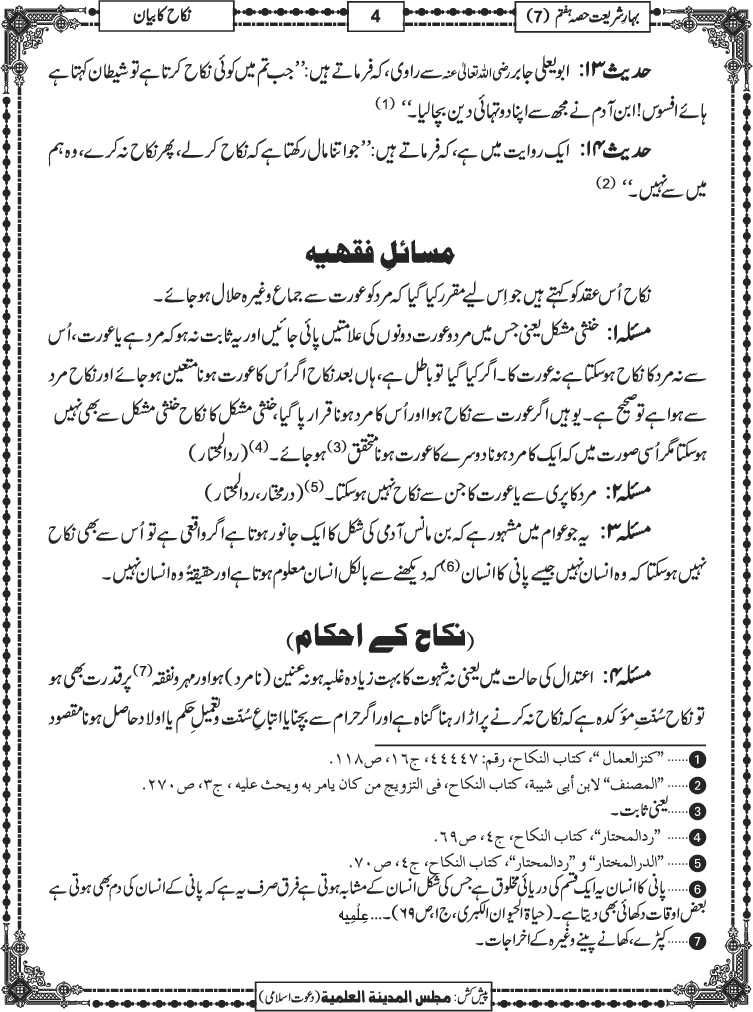 بہارِ شریعت حصہ ہفتم (7)
4
نکاح کا بیان
حدیث ۱۳: ابو یعلی جابر رضی اللہ تعالیٰ عنہ سے راوی، کہ فرماتے ہیں: ’’جب تم میں کوئی نکاح کرتا ہے تو شیطان کہتا ہے
ہائے افسوس! ابن آدم نے مجھ سے اپنا دو تہائی دین بچا لیا۔‘‘ (1)
حدیث ۱۴: ایک روایت میں ہے، کہ فرماتے ہیں: ’’جو اتنا مال رکھتا ہے کہ نکاح کرلے، پھر نکاح نہ کرے، وہ ہم
میں سے نہیں۔‘‘ (2)
مسائلِ فقھیہ
نکاح اُس عقد کو کہتے ہیں جو اِس لیے مقرر کیا گیا کہ مرد کو عورت سے جماع وغیرہ حلال ہو جائے۔
مسئلہ ۱: خنثیٰ مشکل یعنی جس میں مرد و عورت دونوں کی علامتیں پائی جائیں اور یہ ثابت نہ ہو کہ مرد ہے یا عورت، اُس
سے نہ مرد کا نکاح ہو سکتا ہے نہ عورت کا۔ اگر کیا گیا تو باطل ہے، ہاں بعد نکاح اگر اُس کا عورت ہونا متعین ہو جائے اور نکاح مرد
سے ہوا ہے تو صحیح ہے۔ یوہیں اگر عورت سے نکاح ہوا اور اُس کا مرد ہونا قرار پا گیا، خنثیٰ مشکل کا نکاح خنثیٰ مشکل سے بھی نہیں
ہو سکتا مگر اُسی صورت میں کہ ایک کا مرد ہونا دوسرے کا عورت ہونا متحقق (3) ہو جائے۔ (4) (ردالمحتار)
مسئلہ ۲: مرد کا پری سے یا عورت کا جن سے نکاح نہیں ہو سکتا۔ (5) (درمختار، ردالمحتار)
مسئلہ ۳: یہ جو عوام میں مشہور ہے کہ بن مانس آدمی کی شکل کا ایک جانور ہوتا ہے اگر واقعی ہے تو اُس سے بھی نکاح
نہیں ہو سکتا کہ وہ انسان نہیں جیسے پانی کا انسان (6) کہ دیکھنے سے بالکل انسان معلوم ہوتا ہے اور حقیقۃً وہ انسان نہیں۔
(نکاح کے احکام)
مسئلہ ۴: اعتدال کی حالت میں یعنی نہ شہوت کا بہت زیادہ غلبہ ہو نہ عنین (نامرد) ہو اور مہر و نفقہ (7) پر قدرت بھی ہو
تو نکاح سُنّتِ مؤکدہ ہے کہ نکاح نہ کرنے پر اڑا رہنا گناہ ہے اور اگر حرام سے بچنا یا اتباعِ سُنّت و تعمیلِ حکم یا اولاد حاصل ہونا مقصود
1 ...... ’’کنزالعمال‘‘، کتاب النکاح، رقم: ٤٤٤٤٧، ج١٦، ص١١٨.
2 ...... ’’المصنف‘‘ لابن أبی شیبة، کتاب النکاح، فی التزویج من کان یامر به ویحث علیه ، ج٣، ص٢٧٠.
3 ...... یعنی ثابت۔
4 ...... ’’ردالمحتار‘‘، کتاب النکاح، ج٤، ص٦٩.
5 ...... ’’الدرالمختار‘‘ و ’’ردالمحتار‘‘، کتاب النکاح، ج٤، ص٧٠.
6 ...... پانی کا انسان یہ ایک قسم کی دریائی مخلوق ہے جس کی شکل انسان کے مشابہ ہوتی ہے فرق صرف یہ ہے کہ پانی کے انسان کی دم بھی ہوتی ہے
بعض اوقات دکھائی بھی دیتا ہے۔ (حیاۃ الحیوان الکبری، ج ا، ص ۶۹)۔... عِلْمِیه
7 ...... کپڑے، کھانے پینے وغیرہ کے اخراجات۔
پیش کش: مجلس المدینة العلمیة (دعوت اسلامی)